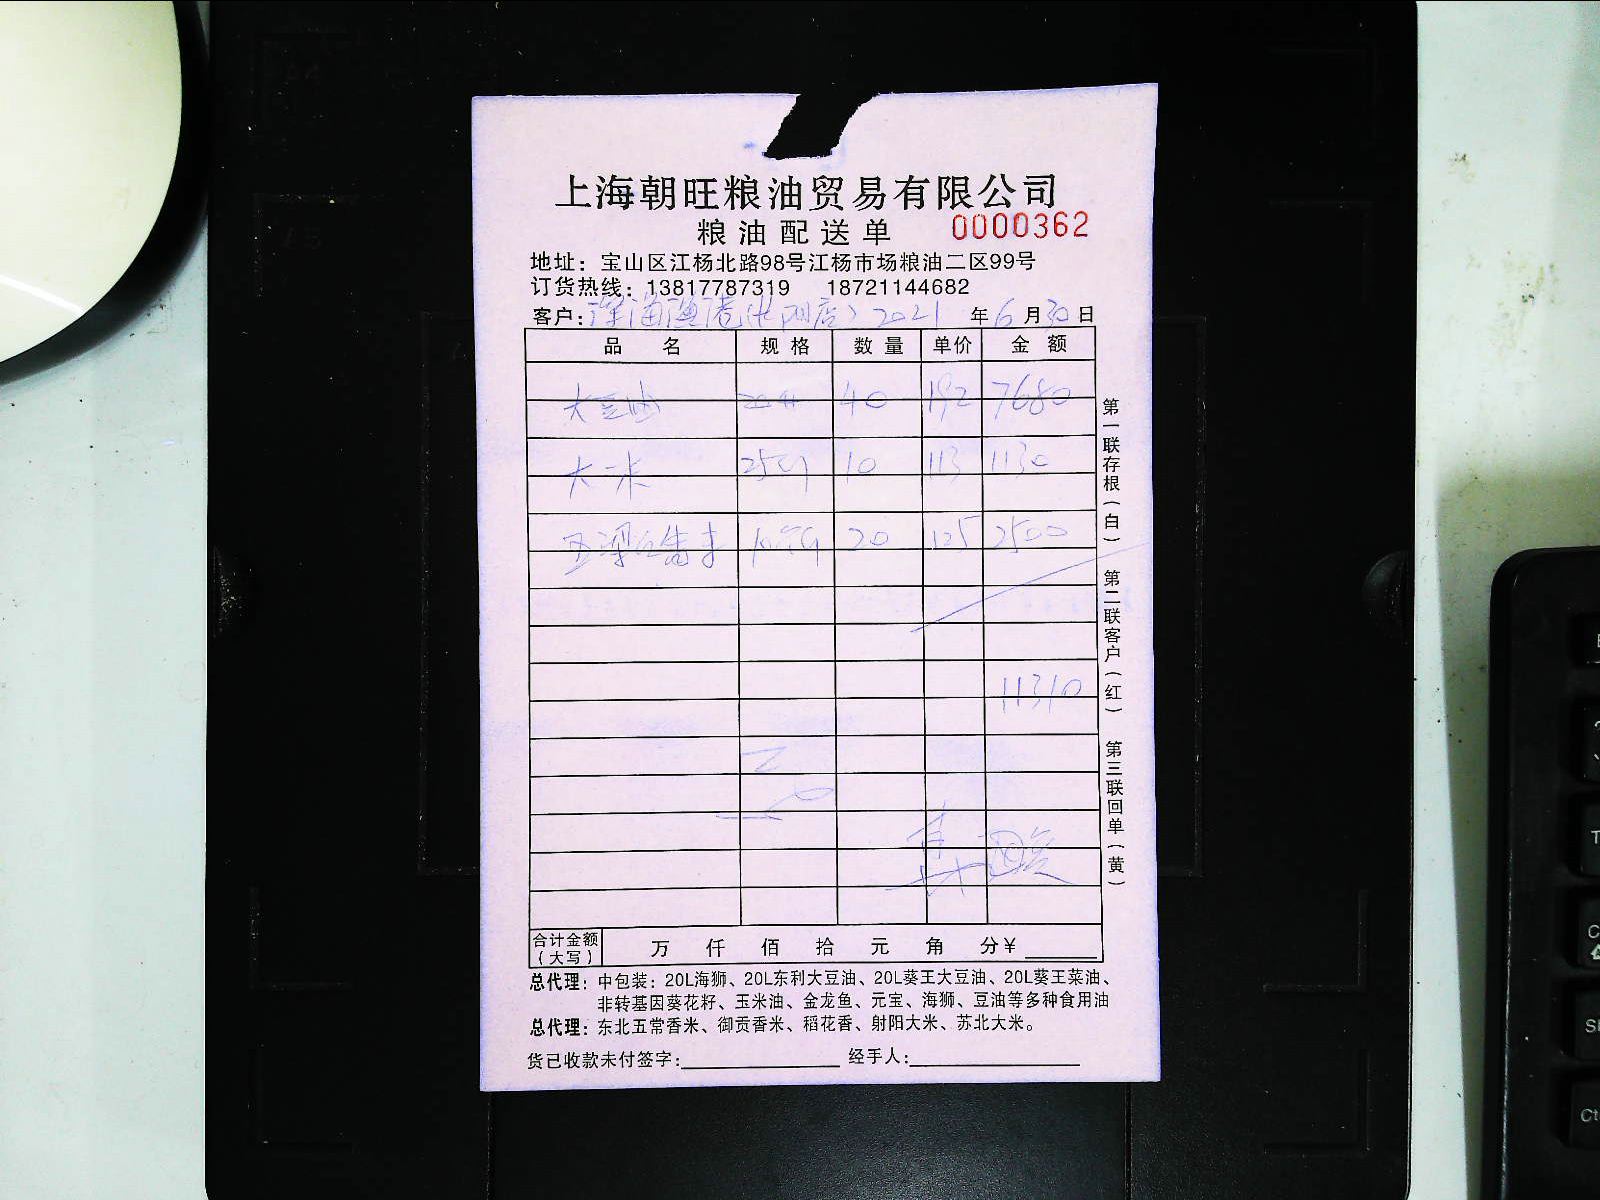 上海朝旺粮油贸易有限公司
粮油配送单 0000362
地址：宝山区江杨北路98号江杨市场粮油二区99号
订货热线：13817787319 18721144682
客户：深海渔港 2021年6月30日
品名 规格 数量 单价 金额
大豆油 40 192 7680
大米 25 10 113 1130
20 125 2500
11310
合计金额（大写） 万 仟 佰 拾 元 角 分￥
总代理：中包装：20L海狮、20L东利大豆油、20L葵王大豆油、20L葵王菜油、
非转基因葵花籽、玉米油、金龙鱼、元宝、海狮、豆油等多种食用油
总代理：东北五常香米、御贡香米、稻花香、射阳大米、苏北大米。
货已收款未付签字： 经手人：
第一联存根（白） 第二联客户（红） 第三联回单（黄）